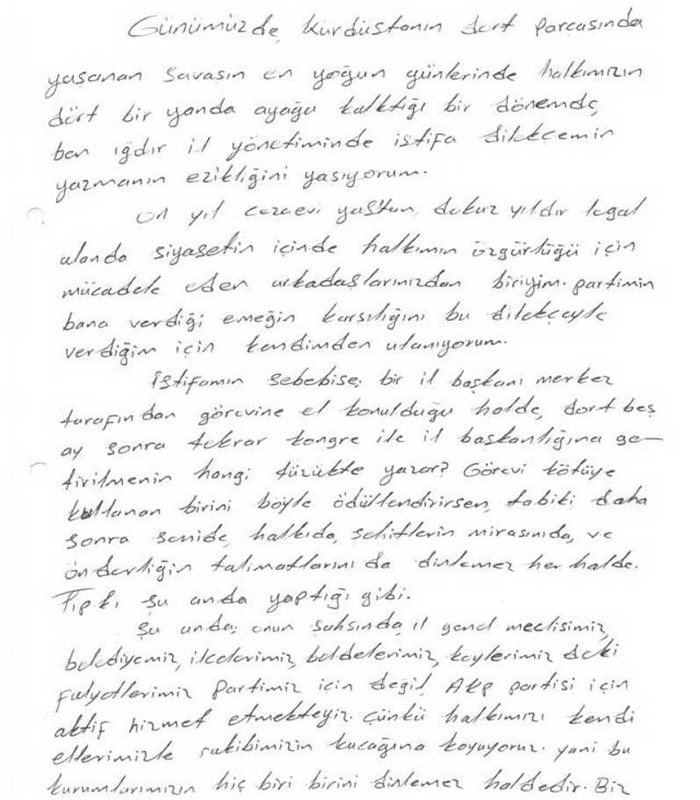 Günümüzde, Kürdüstanın dört parçasında
yaşanan savaşın en yoğun günlerinde halkımızın
dört bir yanda ayağa kalktığı bir dönemde,
ben ığdır il yönetiminde istifa dilekçemin
yazmanın ezikliğini yaşıyorum.
on yıl cezaevi yaşton, dokuz yıldır legal
alanda siyasetin içinde halkımın özgürlüğü için
mücadele eden arkadaşlarınızdan biriyim. partimin
bana verdiği emeğin karşılığını bu dilekçeyle
verdiğim için kendimden utanıyorum.
İstifamın sebebise; bir il başkanı merkez
tarafından görevine el konulduğu halde, dört beş
ay sonra tekrar kongre ile il başkanlığına ge-
tirilmenin hangi tüzükte yazar? Görevi kötüye
kullanan birini böyle ödüllendirirsen, tabiki daha
sonra senide, halkıda, şehitlerin mirasınıda, ve
önderliğin talimatlarını da dinlemez her halde.
Tıpkı şu anda yaptığı gibi.
Şu anda; onun şahsında, il genel meclisimiz,
belediyemiz, ilçelerimiz, beldelerimiz, köylerimiz deki
Partimiz için değil, AKP partisi için
aktif hizmet etmekteyiz. çünkü halkımızı kendi
ellerimizle rakibimizin kucağına koyuyoruz. yani bu
kurumlarımızın hiç biri birini dinlemez haldedir. Biz